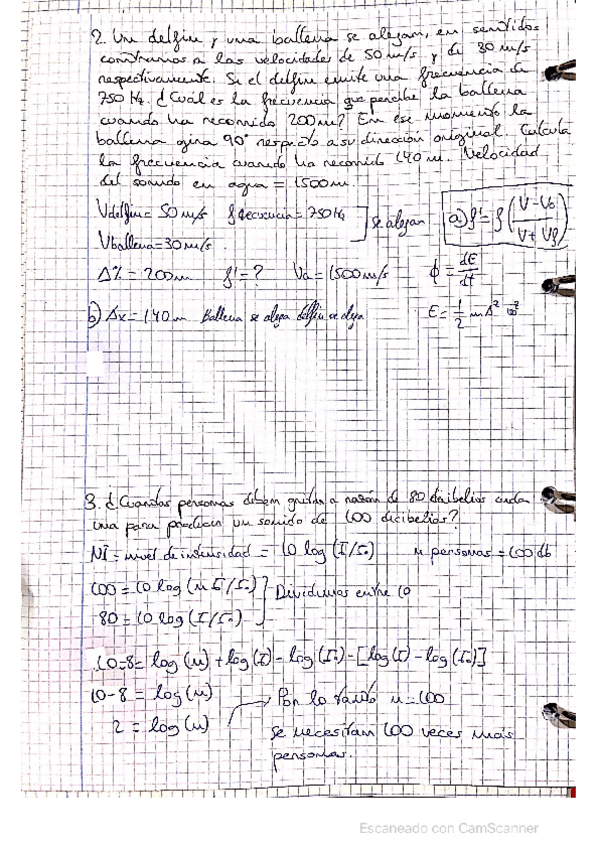 2. Un delfín y una ballena se alejan, en sentidos
contrarios a las velocidades de 50 m/s y de 30 m/s
respectivamente. Si el delfín emite una frecuencia de
750 Hz. ¿Cuál es la frecuencia que percibe la ballena
cuando ha recorrido 200 m? En ese momento la
ballena gira 90° respecto a su dirección original. Calcula
la frecuencia cuando ha recorrido 140 m. Velocidad
del sonido en agua = 1500 m.
Vdelfín = 50 m/s frecuencia = 750 Hz ] se alejan a) f' = f (V - Vo / V + Vf)
Vballena = 30 m/s.
Δx = 200 m f' = ? Va = 1500 m/s ϕ = dE/dt
b) Δx = 140 m Ballena se aleja delfín se aleja E = 1/2 m A²
3. ¿Cuantas personas deben gritar a razón de 80 decibelios cada
una para producir un sonido de 100 decibelios?
NI = nivel de intensidad = 10 log (I/I₀) n personas = 100 db
100 = 10 log (n I/I₀) ] Dividimos entre 10
80 = 10 log (I/I₀)
10-8 = log(n) + log(I) - log(I₀) - [log(I) - log(I₀)]
10-8 = log(n) Por lo tanto n = 100
2 = log(n) se necesitan 100 veces más
personas.
Escaneado con CamScanner